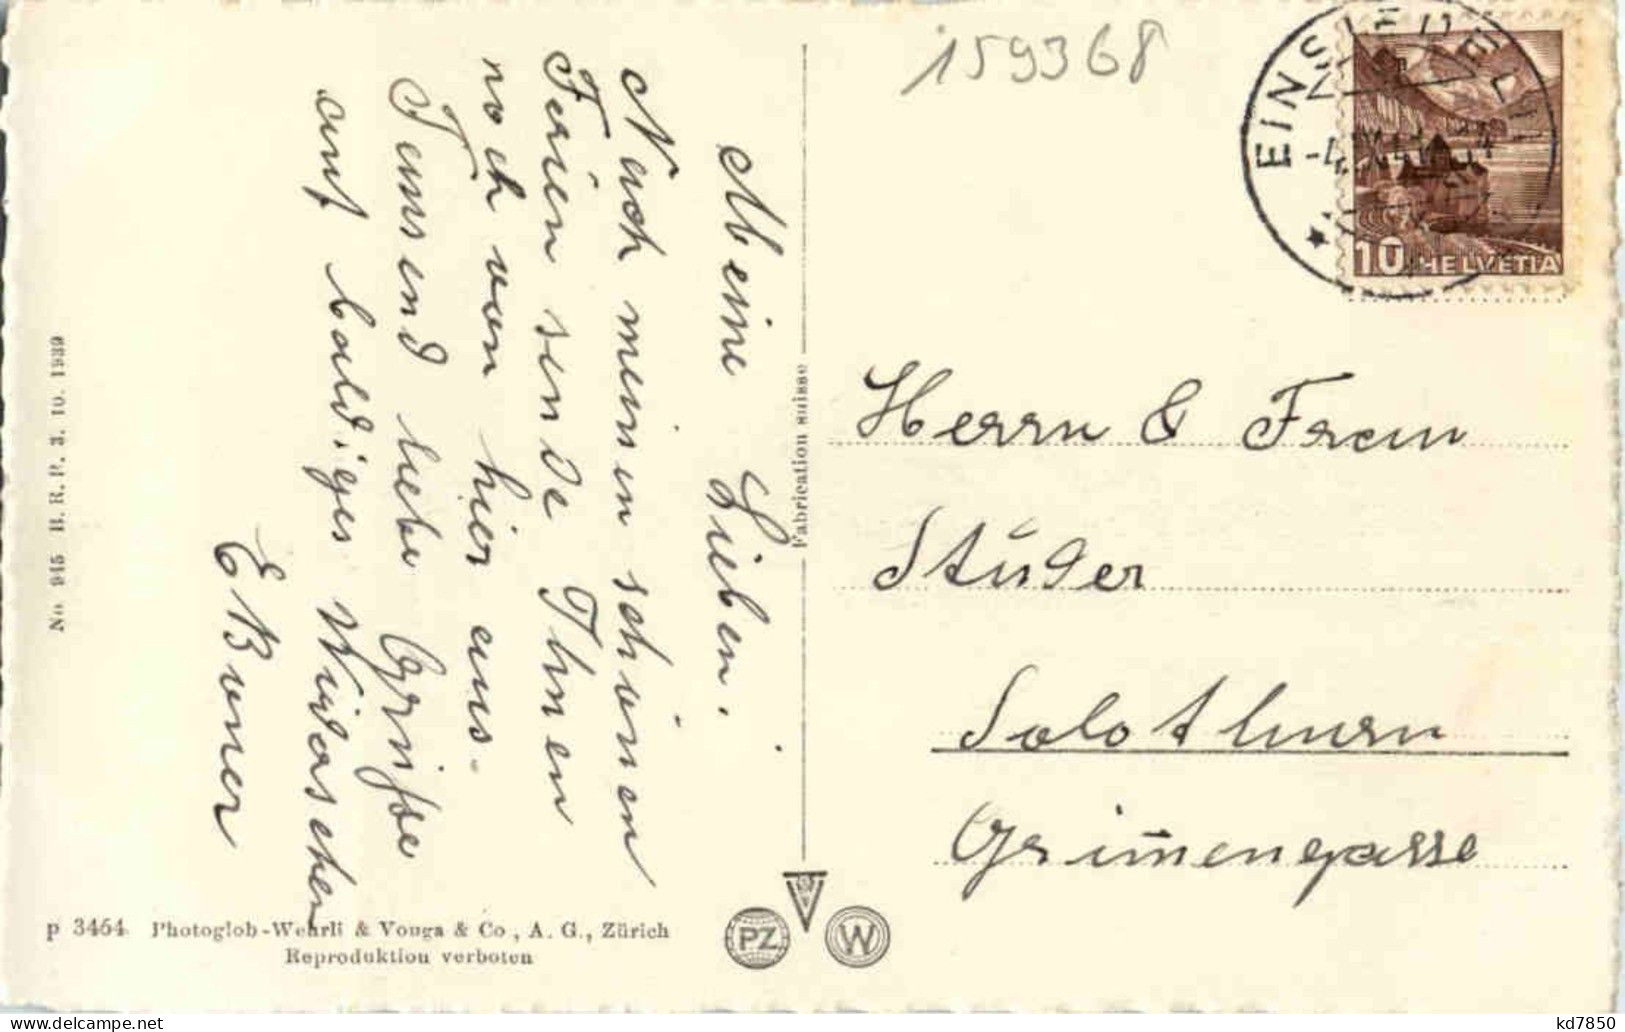 159368
EINSIEDELN
10 HELVETIA
Meine Lieben.
Nach meinen schönen
Ferien sende Ihnen
noch von hier aus
Tausend liebe Grüsse
auf baldiges Widersehen
Herrn & Frau
Studer
Solothurn
Grimmengasse
Fabrication suisse
No. 945 B. R. P. 3. 10. 1939
p 3464. Photoglob-Wehrli & Vouga & Co, A. G., Zürich
Reproduktion verboten
PZ
W
kd7850